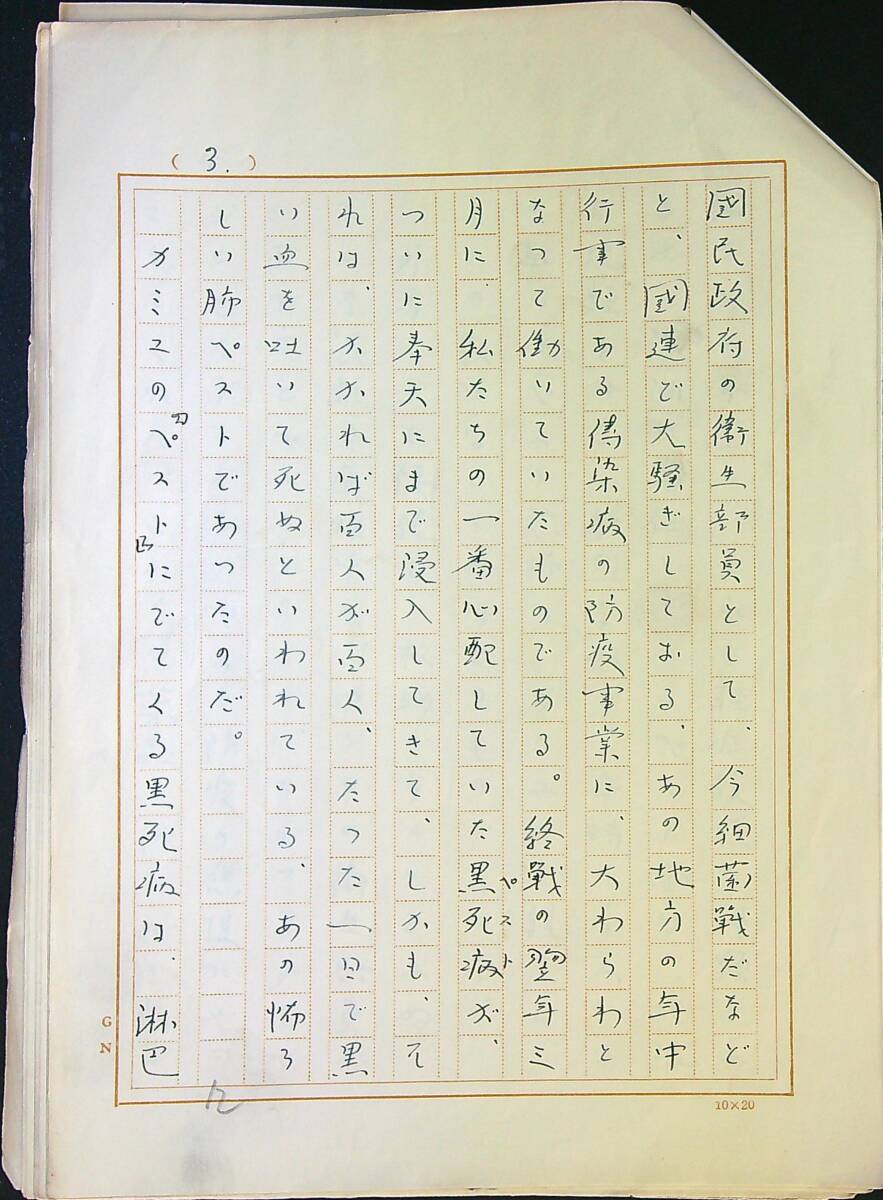 (3.)
國民政府の衛生部員として、今細菌戦だなど
と、國連で大騒ぎしておる、あの地方の年中
行事である傳染病の防疫事業に、大わらわと
なって働いていたものである。終戦の翌年三
月に、私たちの一番心配していた黒死病が、
ペスト
ついに奉天にまで浸入してきて、しかも、そ
れは、かかれば百人が百人、たった一日で黒
い血を吐いて死ぬといわれている、あの怖ろ
しい肺ペストであつたのだ。
カミユのペストにでてくる黒死病は、淋巴
GN
12
10×20